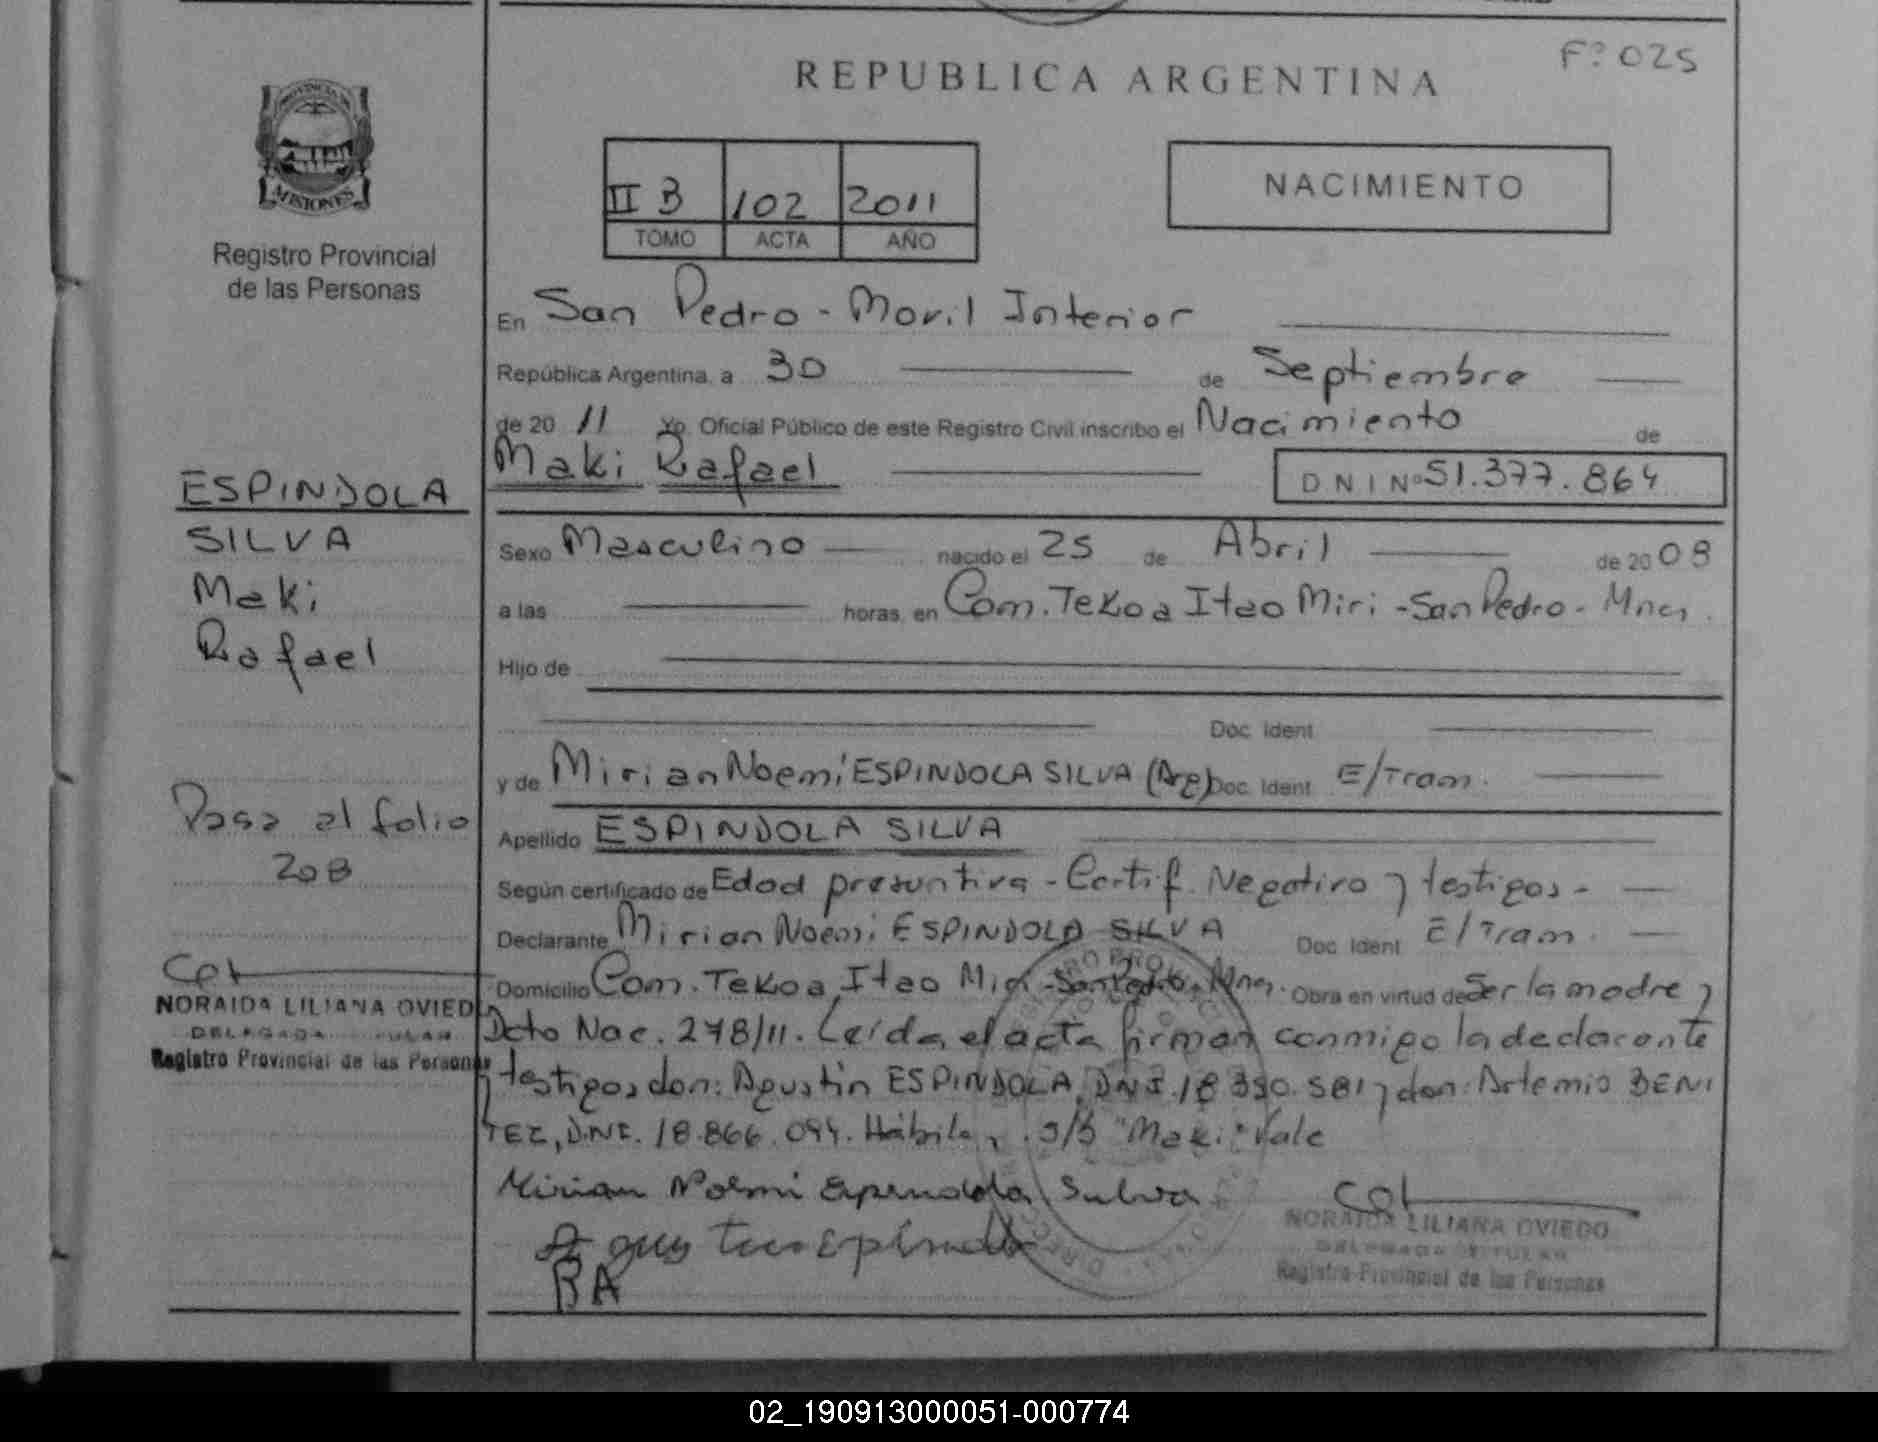 Fº 025
REPUBLICA ARGENTINA
PROVINCIA DE
MISIONES
Registro Provincial
de las Personas
II B 102 2011
TOMO ACTA AÑO
NACIMIENTO
En San Pedro - Movil Interior
República Argentina, a 30 de Septiembre
de 20 11 Yo, Oficial Público de este Registro Civil inscribo el Nacimiento de
Maki Rafael DNI Nº 51.377.864
Sexo Masculino nacido el 25 de Abril de 20 08
a las horas, en Com. Tekoa Itao Miri - San Pedro - Mnes.
Hijo de
Doc. Ident.
y de Mirian Noemi ESPINDOLA SILVA (Arg) Doc. Ident. E/Tram.
Apellido ESPINDOLA SILVA
Según certificado de Edad presuntiva - Certif. Negativo y testigos -
Declarante Mirian Noemi ESPINDOLA SILVA Doc. Ident. E/Tram.
Domicilio Com. Tekoa Itao Miri - San Pedro - Mnes. Obra en virtud de Ser la madre y
Dcto Nac. 278/11. Leída el acta firman conmigo la declarante
y testigos don: Agustin ESPINDOLA, DNI. 18.390.581 y don: Artemio BENI
TEZ, DNI. 18.866.094. Hábiles. s/b "Maki" Vale
Mirian Noemi Espindola Silva
BA
NORAIDA LILIANA OVIEDO
DELEGADA TITULAR
Registro Provincial de las Personas
ESPINDOLA
SILVA
Maki
Rafael
Pasa al folio
208
NORAIDA LILIANA OVIEDO
DELEGADA TITULAR
Registro Provincial de las Personas
02_190913000051-000774